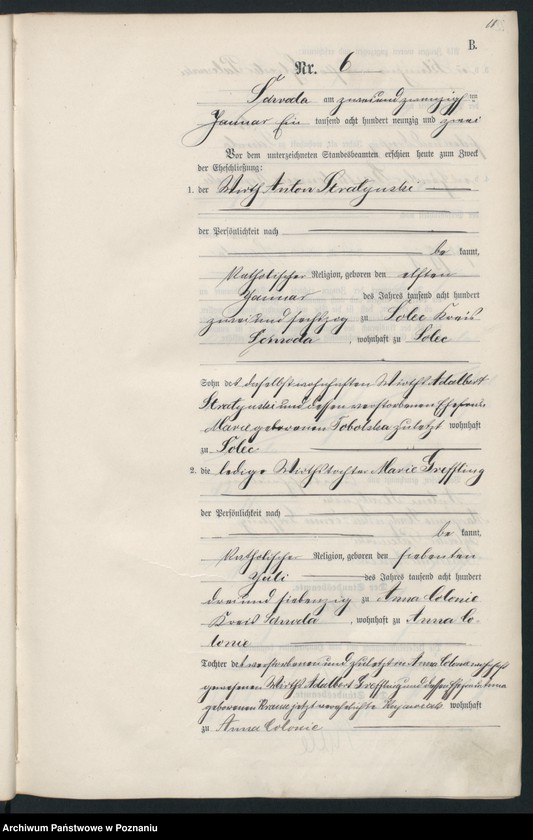 11
B.
Nr. 6
Schroda am zweiundzwanzigsten
Januar Ein tausend acht hundert neunzig und zwei
Vor dem unterzeichneten Standesbeamten erschien heute zum Zweck
der Eheschließung:
1. der Wirth Anton Stratynski
der Persönlichkeit nach
be kannt,
katholischer Religion, geboren den elften
Januar des Jahres tausend acht hundert
zwei und sechszig zu Solec Kreis
Schroda, wohnhaft zu Solec
Sohn des daselbst wohnhaften Wirths Adalbert
Stratynski und dessen verstorbenen Ehefrau
Marie geborenen Tobolska zuletzt wohnhaft
zu Solec
2. die ledige Wirthstochter Marie Greffling
der Persönlichkeit nach
be kannt,
katholischer Religion, geboren den siebenten
Juli des Jahres tausend acht hundert
drei und siebenzig zu Anna Colonie
Kreis Schroda, wohnhaft zu Anna Co-
lonie
Tochter des verstorbenen und zuletzt in Anna Colonie wohnhaft
gewesenen Wirths Adalbert Greffling und dessen Ehefrau Anna
geborenen Kraus jetzt verehelichte wohnhaft
zu Anna Colonie
Archiwum Państwowe w Poznaniu